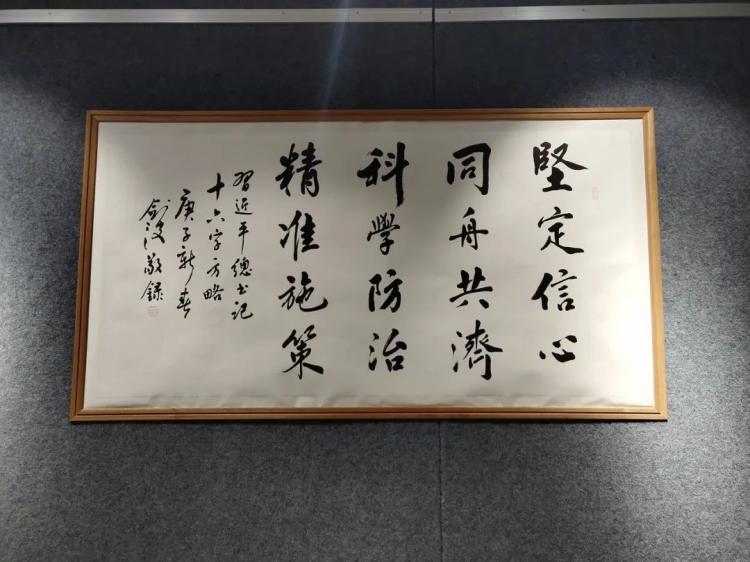 堅定信心
同舟共濟
科學防治
精准施策
習近平總书记
十六字方略
庚子新春
敬錄